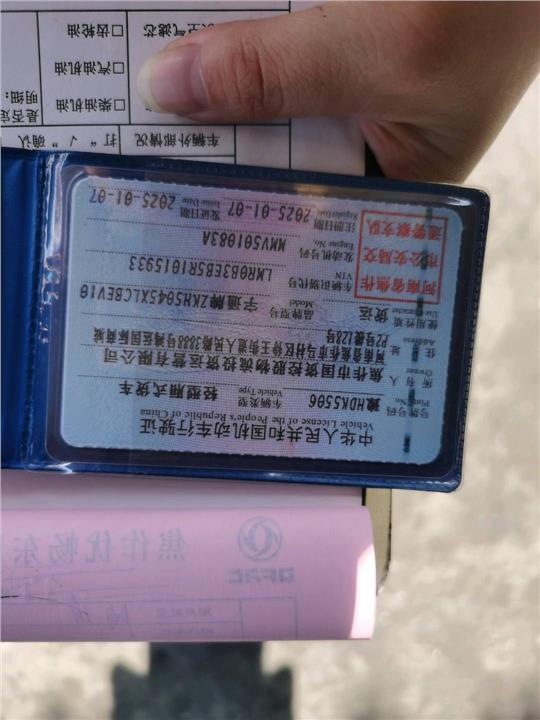 中华人民共和国机动车行驶证
Vehicle License of the People's Republic of China
号牌号码
Plate No.
豫HDK5506
车辆类型
Vehicle Type
轻型厢式货车
所有人
Owner
焦作市国资控股物流投资运营有限公司
住址
Address
河南省焦作市马村区待王街道人民路3888号鸿运国际商城
P2号楼128号
使用性质
Use Character
货运
品牌型号
Model
宇通牌ZKH5045XLCBEV10
河南省焦作
市公安局交
通警察支队
车辆识别代号
VIN
LMRB3EB5R1015933
发动机号码
Engine No.
MMVS01083A
注册日期
Register Date
2025-01-07
发证日期
Issue Date
2025-01-07
车辆外部情况
打"√"确认
是否定
明细:
柴油机油
汽油机油
齿轮油
空气滤芯
DFAC
焦作优畅东